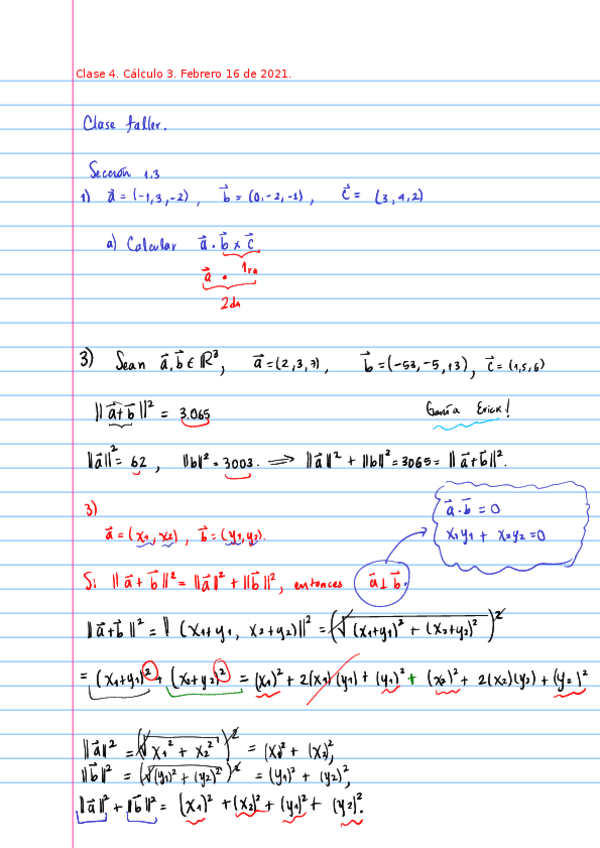 Clase 4. Cálculo 3. Febrero 16 de 2021.
Clase taller.
Sección 1.3
1) a⃗ = (-1,3,-2), b⃗ = (0,-2,-1), c⃗ = (3,4,2)
a) Calcular a⃗ · b⃗ × c⃗
a⃗ · 1ra
2da
3) Sean a⃗, b⃗ ∈ ℝ³, a⃗ = (2,3,7), b⃗ = (-53,-5,13), c⃗ = (1,5,6)
||a⃗+b⃗||² = 3.065 Erick!
||a⃗||² = 62, ||b||² = 3003. ⟹ ||a⃗||² + ||b||² = 3065 = ||a⃗+b⃗||².
3)
a⃗ = (x₁, x₂), b⃗ = (y₁, y₂).
a⃗ · b⃗ = 0
x₁y₁ + x₂y₂ = 0
Si ||a⃗ + b⃗||² = ||a⃗||² + ||b⃗||², entonces a⃗ ⊥ b⃗.
||a⃗+b⃗||² = || (x₁+y₁, x₂+y₂)||² = (√((x₁+y₁)² + (x₂+y₂)²))²
= (x₁+y₁)² + (x₂+y₂)² = (x₁)² + 2(x₁)(y₁) + (y₁)² + (x₂)² + 2(x₂)(y₂) + (y₂)²
||a⃗||² = (√(x₁² + x₂²))² = (x₁)² + (x₂)²,
||b⃗||² = (√((y₁)² + (y₂)²))² = (y₁)² + (y₂)²,
||a⃗||² + ||b⃗||² = (x₁)² + (x₂)² + (y₁)² + (y₂)².